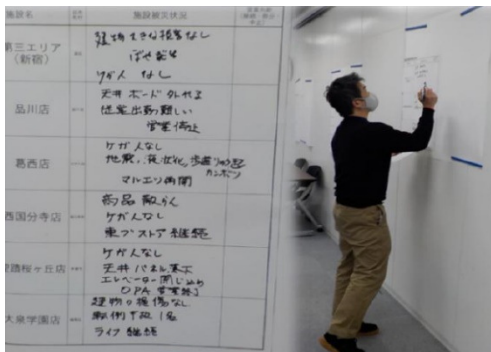 施設名 施設被災状況
第三エリア
(新宿)
建物大きな損害なし
ぼや発生
けが人 なし
品川店
天井ボード外れる
従業出勤難しい
営業停止
葛西店
ケガ人なし
地震、液状化、歩道り
マルエツ再開
西国分寺店
商品散らん
ケガ人なし
東ブストア継続
聖蹟桜ヶ丘店
ケガ人なし
天井パネル落下
エレベーター閉じ込め
OPA 営業終了
大泉学園店
建物の損傷なし
転倒 1名
ライフ継続